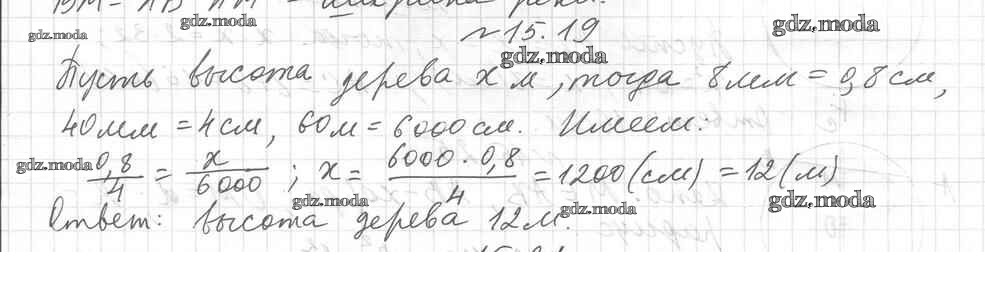 №15.19
Пусть высота дерева x м, тогда 8 мм = 0,8 см,
40 мм = 4 см, 60 м = 6000 см. Имеем:
0,8/4 = x/6000 ; x = 6000 · 0,8/4 = 1200 (см) = 12 (м)
Ответ: высота дерева 12 м.
gdz.moda
gdz.moda
gdz.moda
gdz.moda
gdz.moda
gdz.moda
gdz.moda
gdz.moda